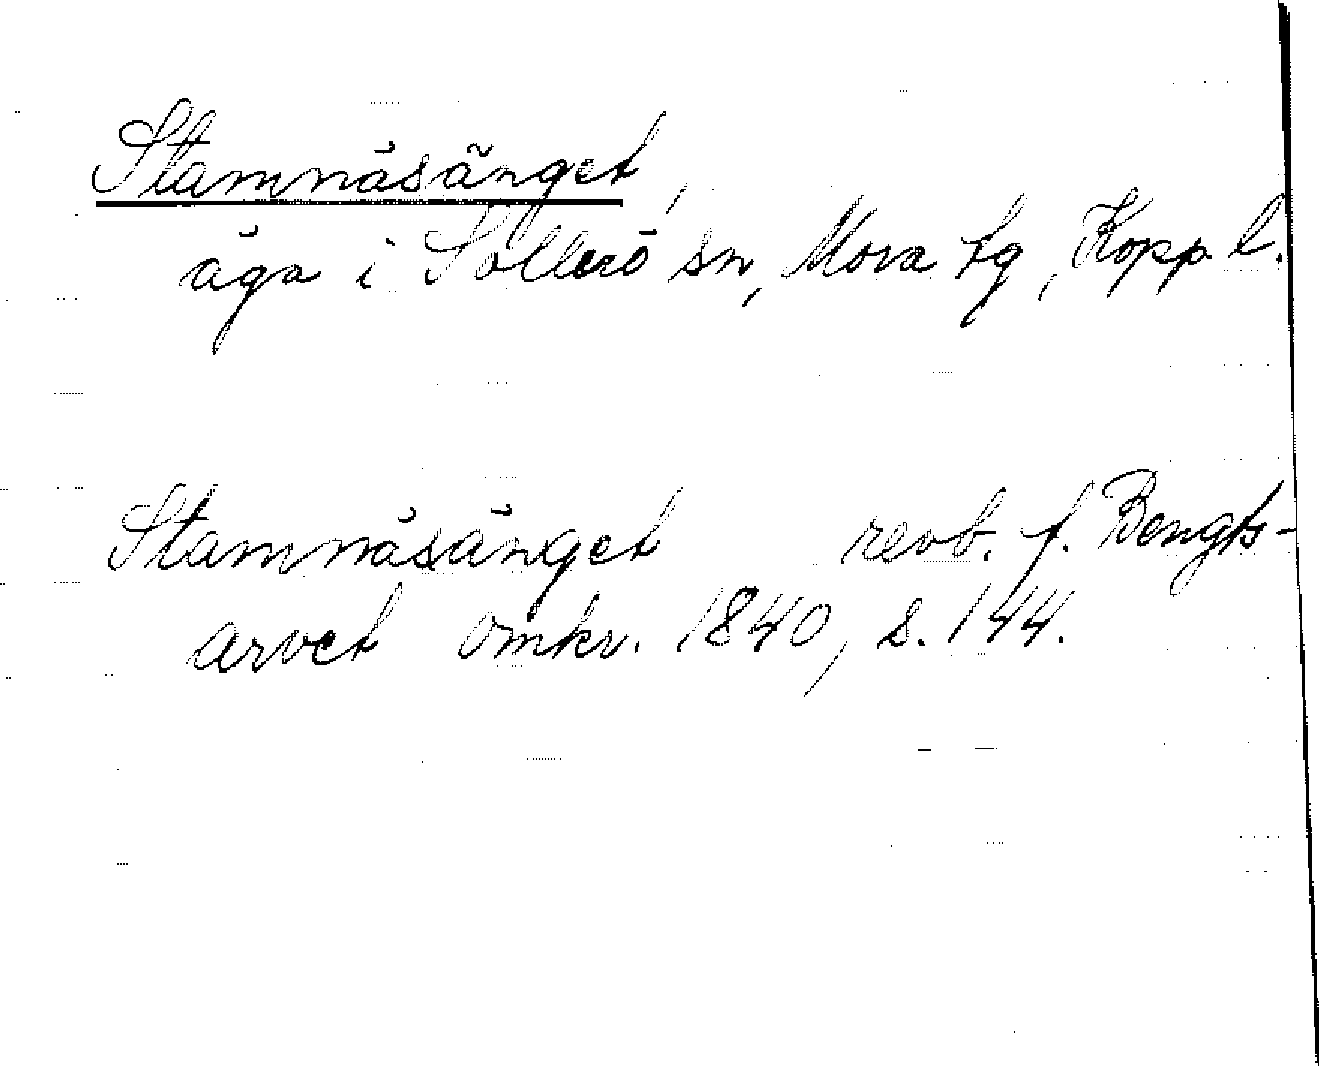 Stamnäsänget,
äga i Sollerö sn, Mora tg, Kopp. l.
Stamnäsänget revb. f. Bengts-
arvet omkr. 1840, s. 144.